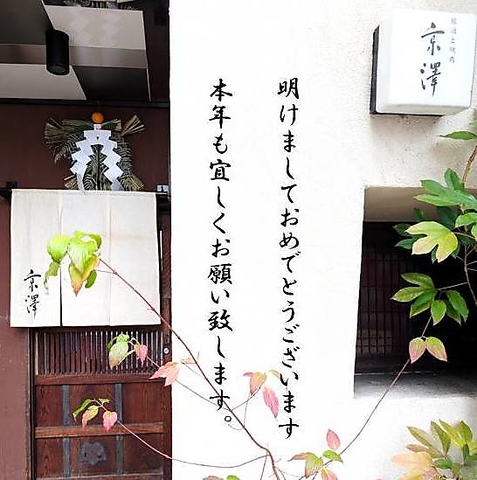 明けましておめでとうございます
本年も宜しくお願い致します。
京澤
京澤